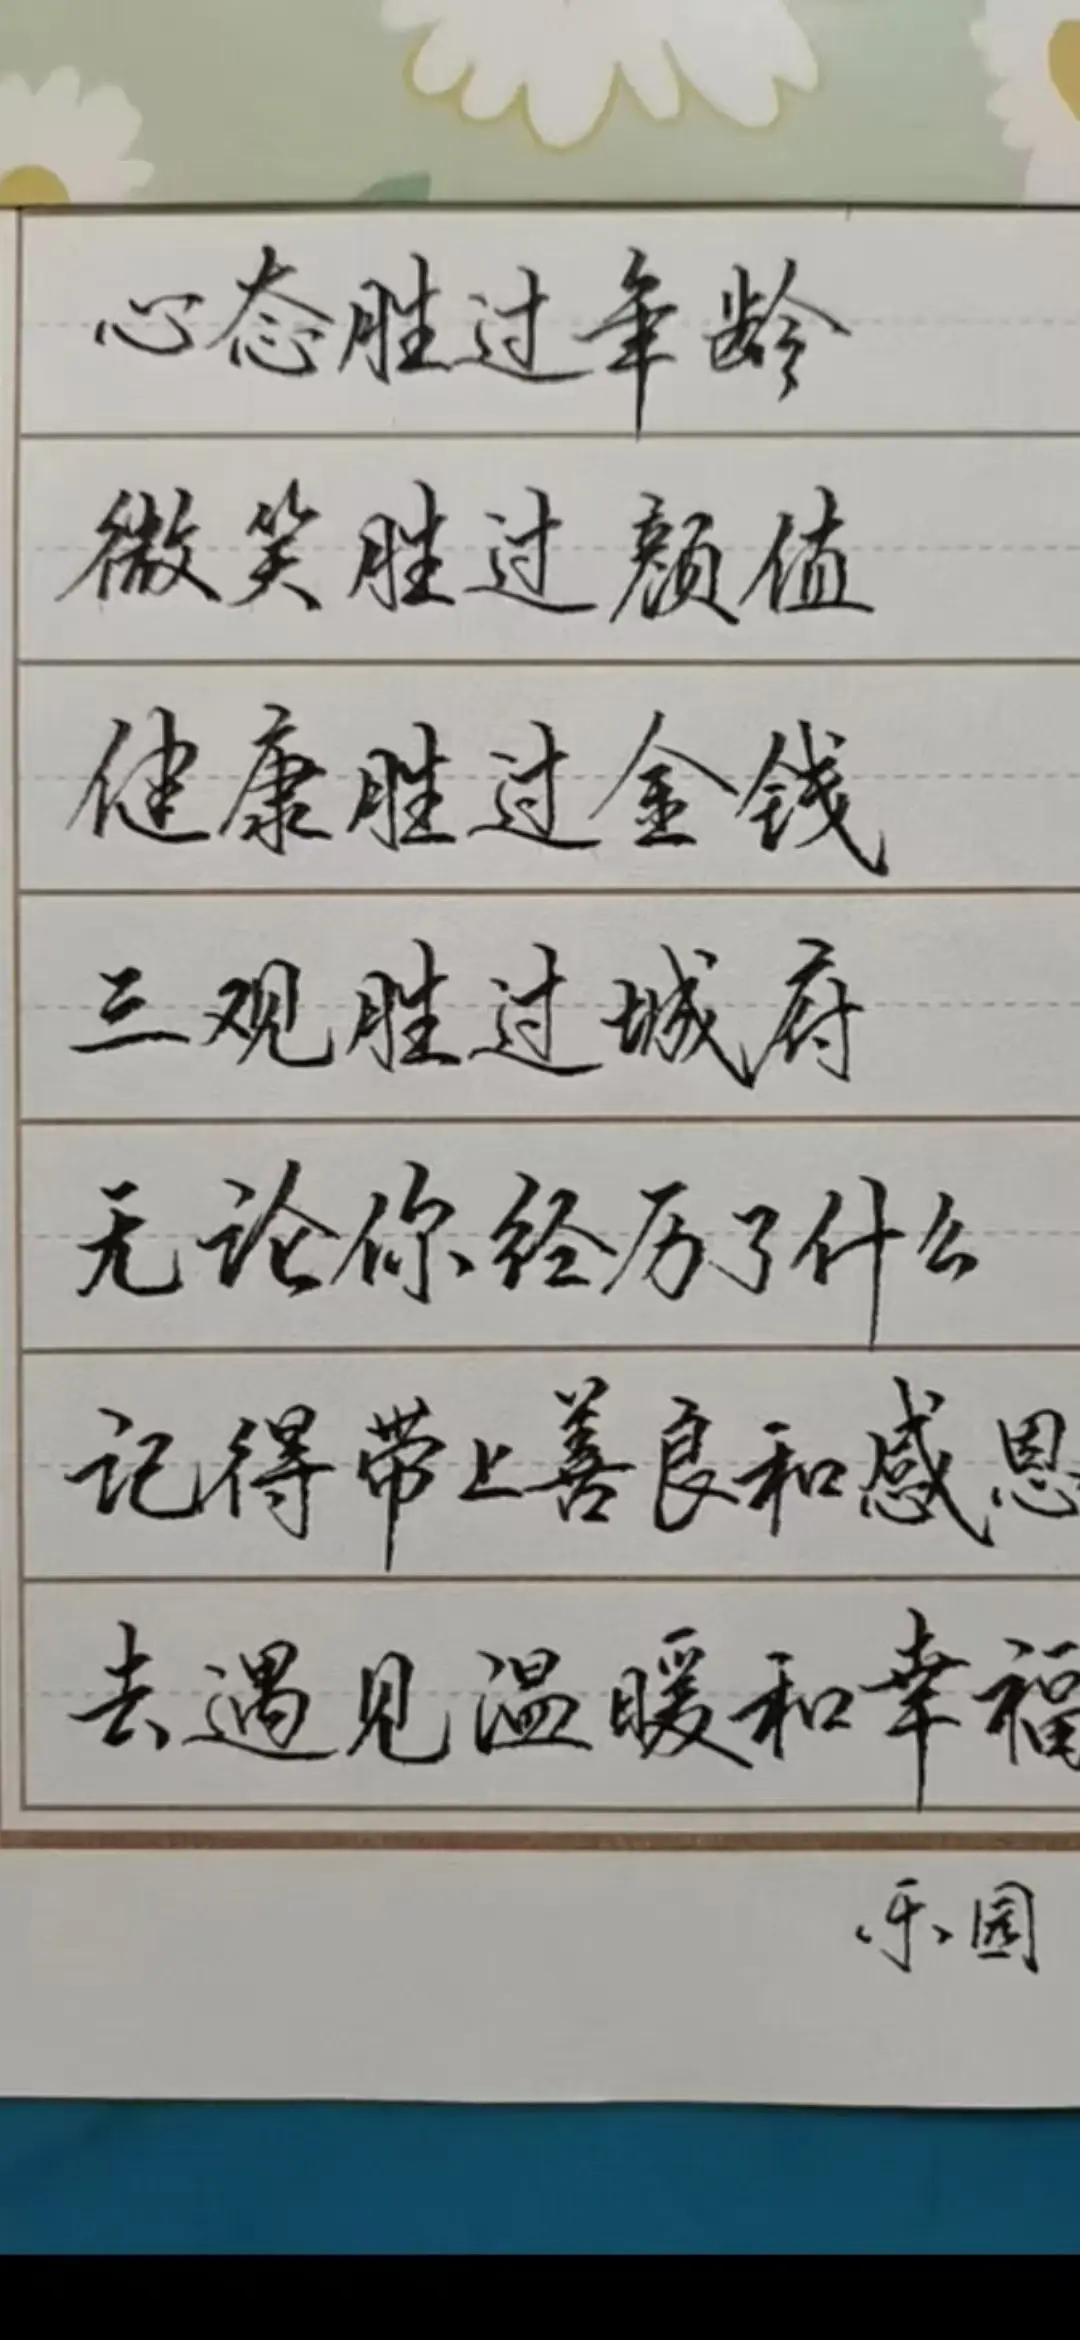 心态胜过年龄
微笑胜过颜值
健康胜过金钱
三观胜过城府
无论你经历了什么
记得带上善良和感恩
去遇见温暖和幸福
乐园